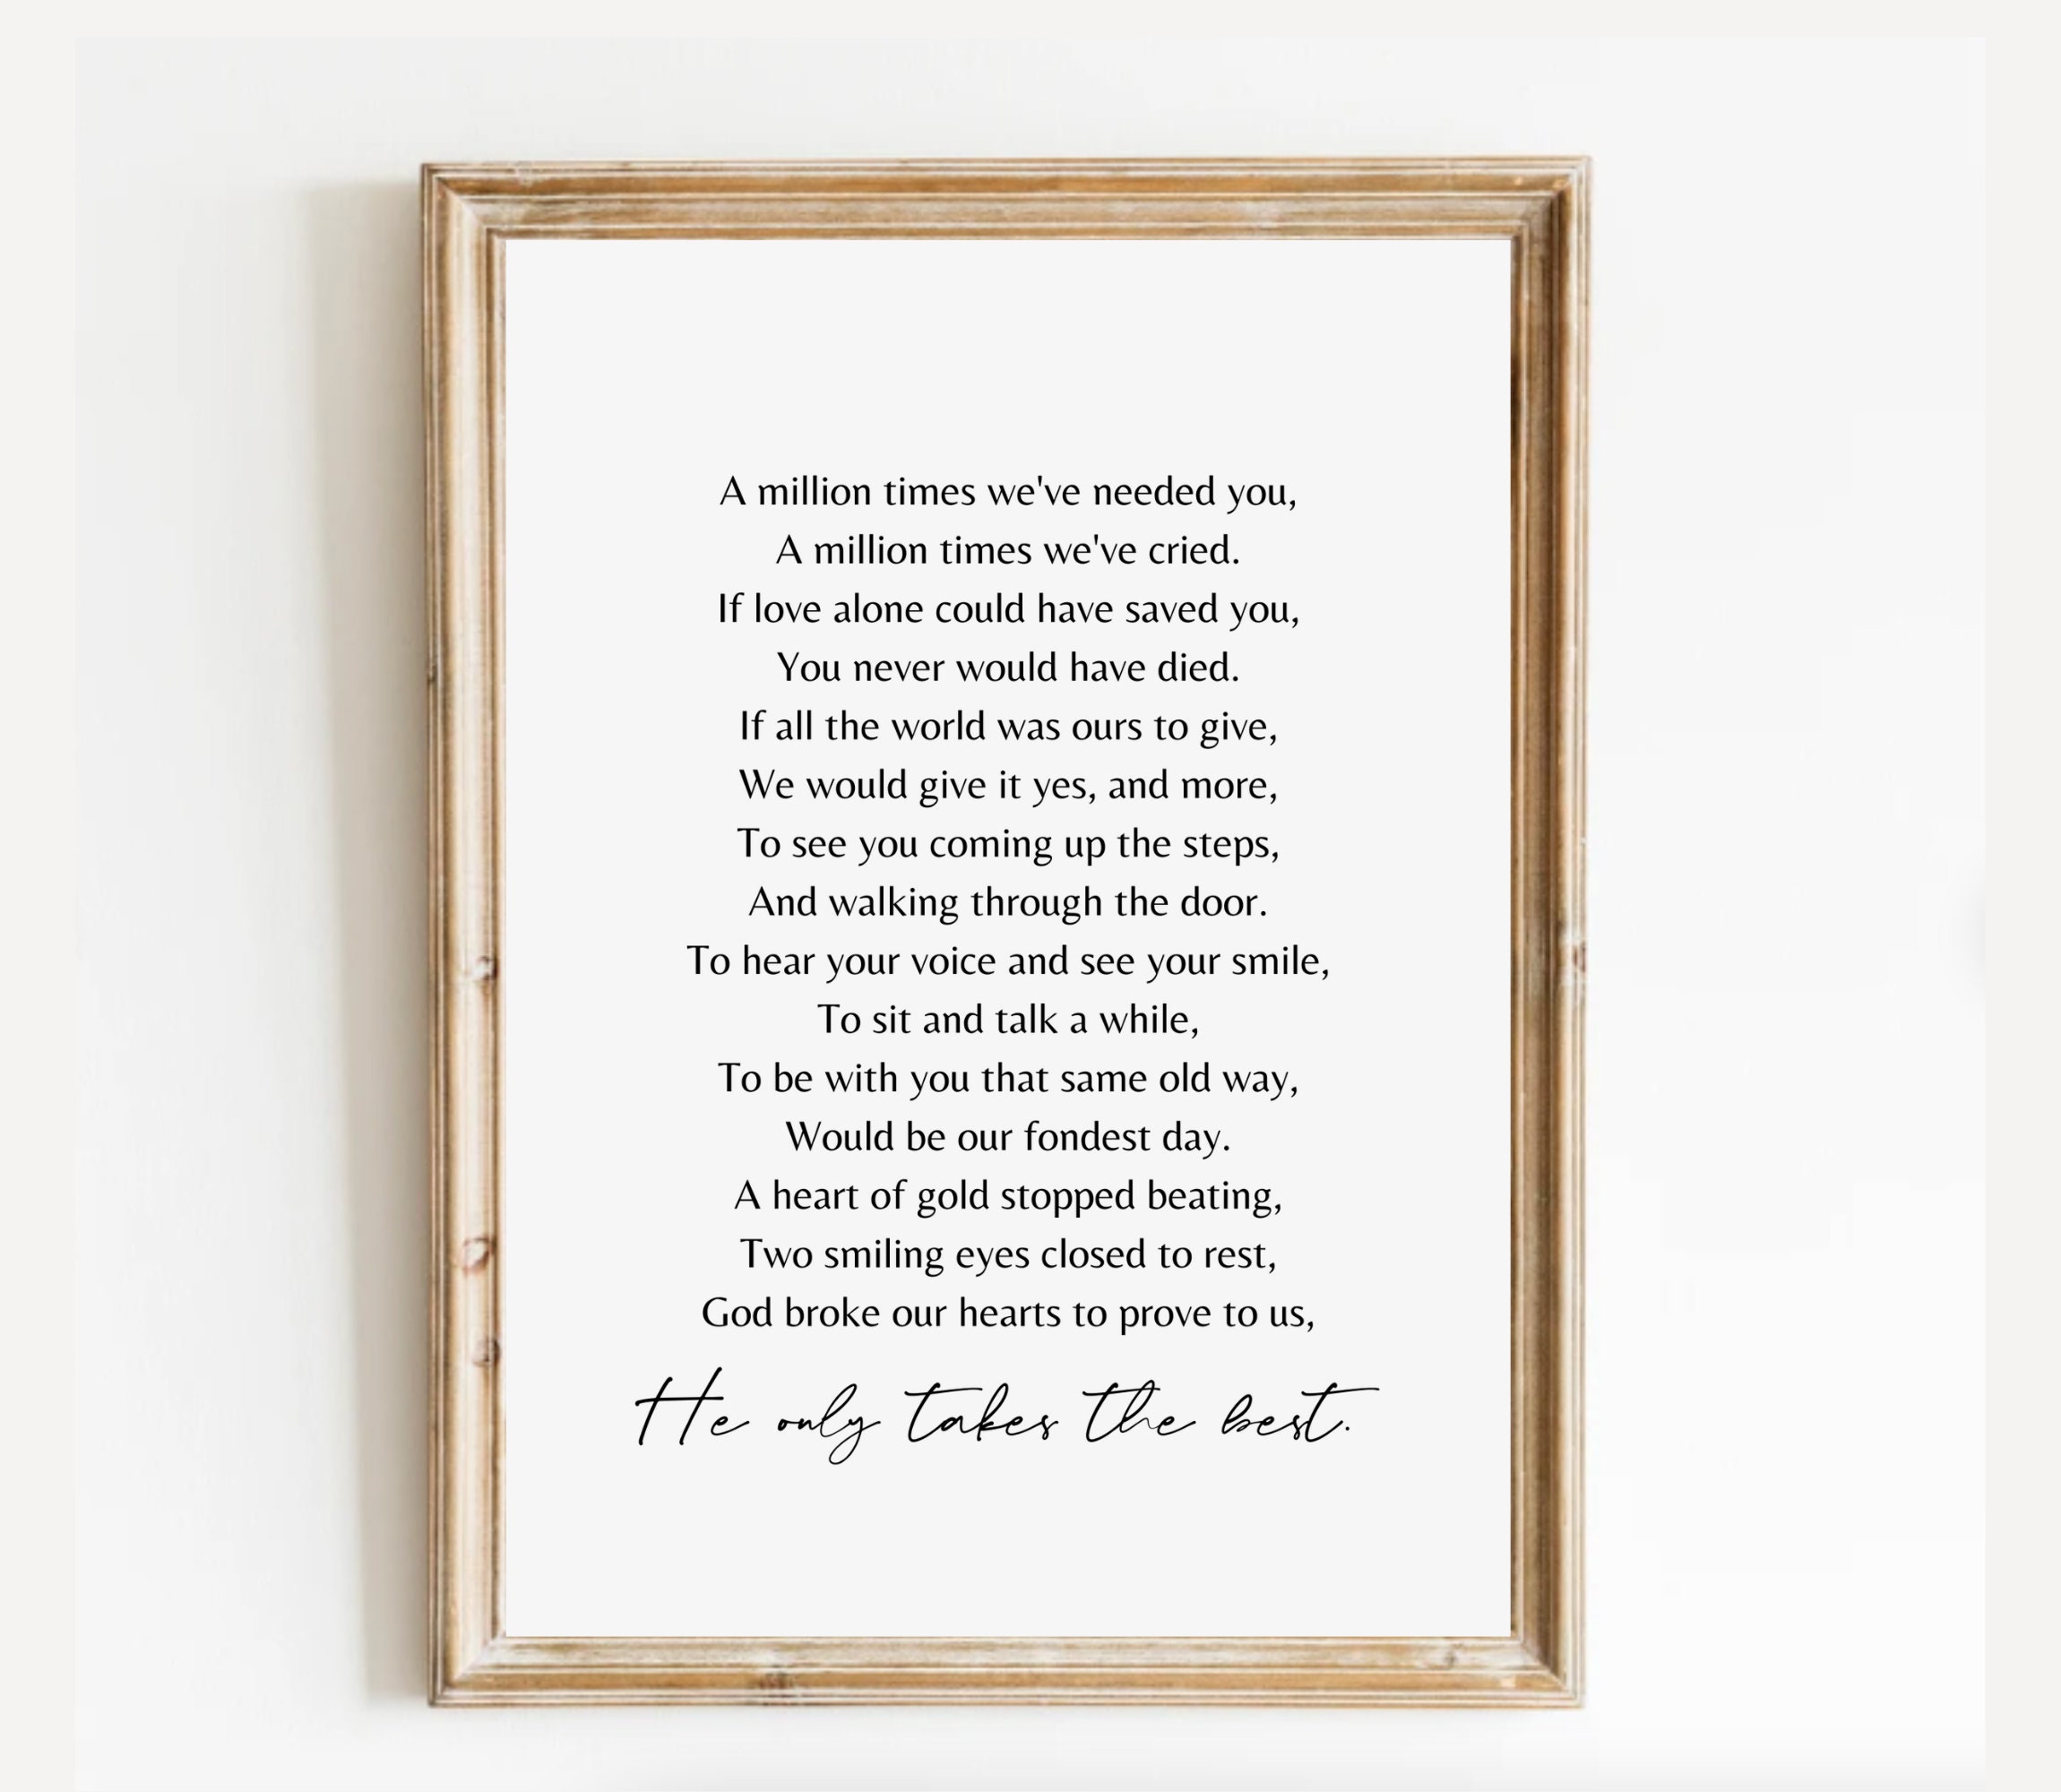 A million times we've needed you,
A million times we've cried.
If love alone could have saved you,
You never would have died.
If all the world was ours to give,
We would give it yes, and more,
To see you coming up the steps,
And walking through the door.
To hear your voice and see your smile,
To sit and talk a while,
To be with you that same old way,
Would be our fondest day.
A heart of gold stopped beating,
Two smiling eyes closed to rest,
God broke our hearts to prove to us,
He only takes the best.